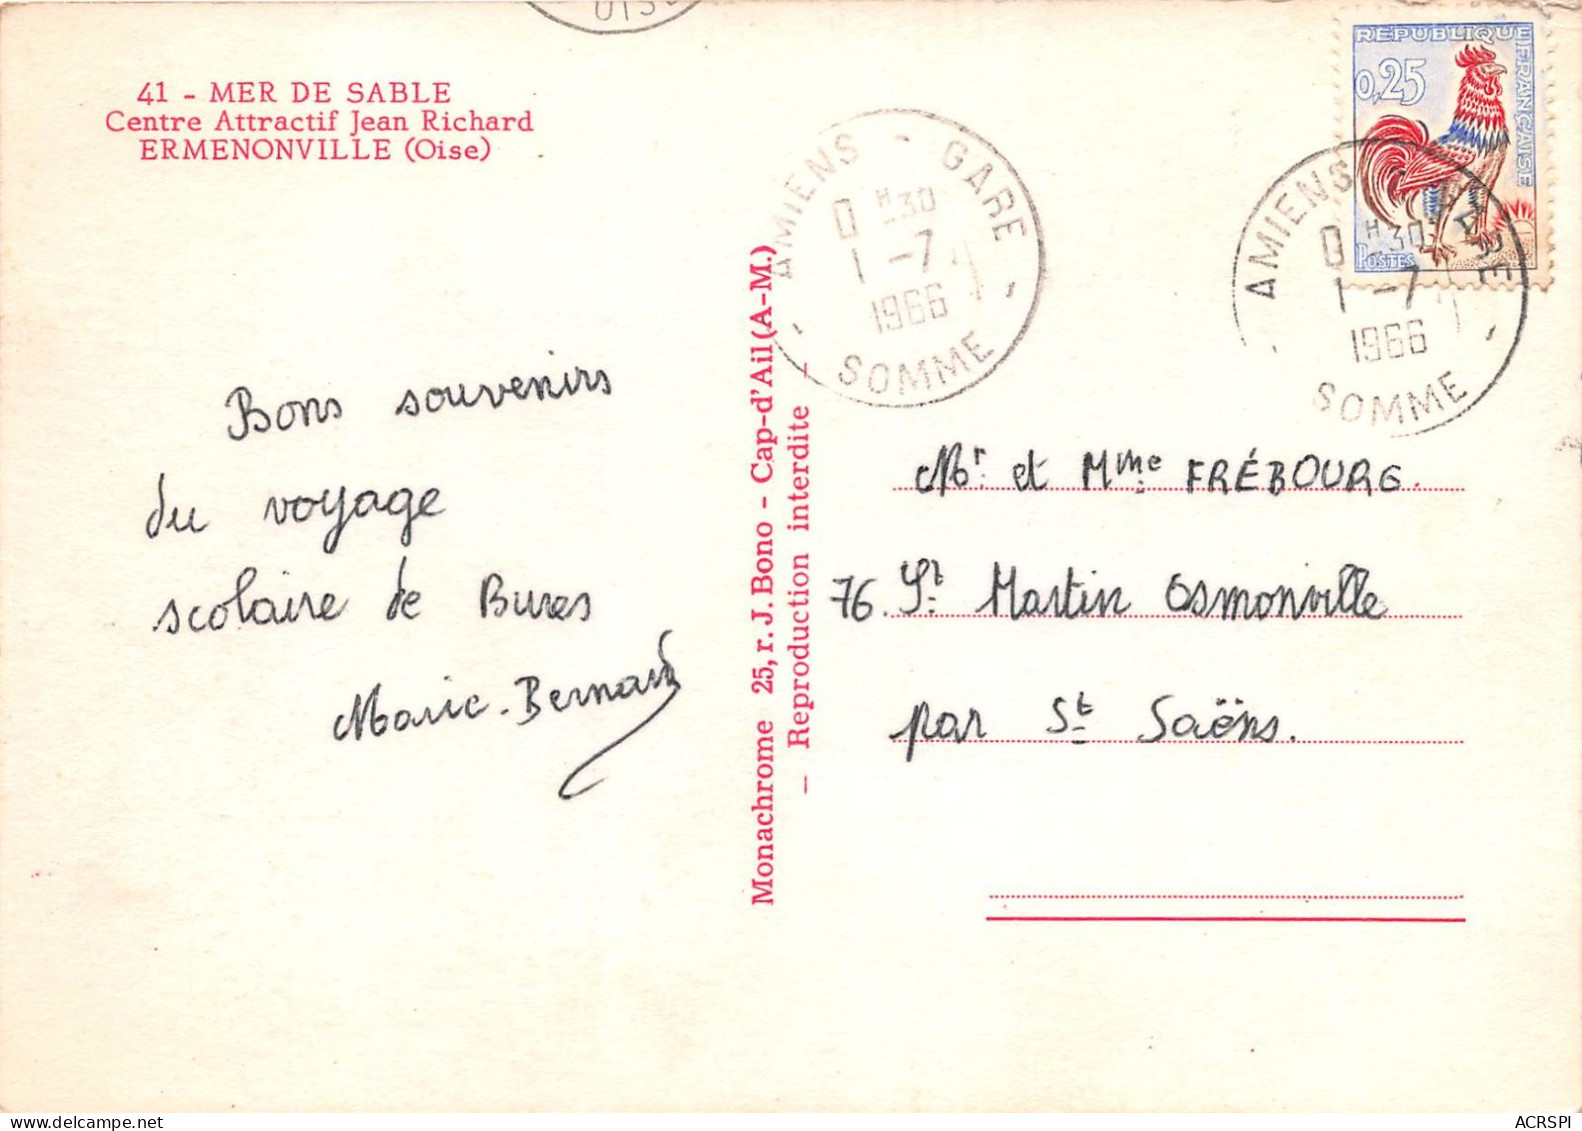 OISE
41 - MER DE SABLE
Centre Attractif Jean Richard
ERMENONVILLE (Oise)
REPUBLIQUE FRANÇAISE
0,25
POSTES
AMIENS - GARE
0 H 30
1 - 7
1966
SOMME
AMIENS GARE
0 H 30
1 - 7
1966
SOMME
Bons souvenirs
du voyage
scolaire de Bures
Marie-Bernard
Monachrome 25, r. J. Bono - Cap-d'Ail (A-M.)
— Reproduction interdite —
Mr. et Mme FRÉBOURG.
76. St. Martin Osmonville
par St Saëns.
delcampe.net
ACRSPI